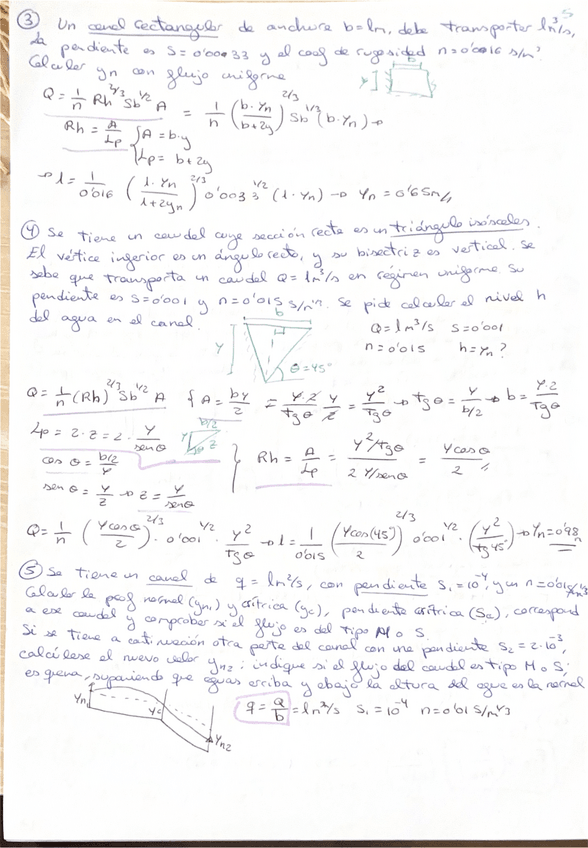 5
③ Un canal rectangular de anchura b=1m, debe transportar 1m³/s,
la pendiente es S=0'0033 y el coef de rugosidad n=0'0016 s/m³.
Calcular yn con flujo uniforme
b
y
Q = 1/n Rh^2/3 Sb^1/2 A = 1/n (b·Yn / b+2y)^2/3 Sb^1/3 (b·Yn) →
Rh = A/Lp { A = b·y
Lp = b+2y
→ 1 = 1/0'016 (1·Yn / 1+2yn)^2/3 0'0033^1/2 (1·Yn) → Yn = 0'65m
④ Se tiene un caudal cuya sección recta es un triángulo isósceles.
El vértice inferior es un ángulo recto, y su bisectriz es vertical. Se
sabe que transporta un caudal Q=1m³/s en régimen uniforme. Su
pendiente es S=0'001 y n=0'015 s/m^1/3. Se pide calcular el nivel h
del agua en el canal.
b
Y
θ=45°
Q=1m³/s S=0'001
n=0'015 h=Yn?
Q = 1/n (Rh)^2/3 Sb^1/2 A { A = by/2 = Y·2/tgθ Y/2 = Y²/tgθ → tgθ = Y/b/2 → b = Y·2/tgθ
Lp = 2·z = 2· Y/senθ
b/2
Y
z
θ
cos θ = b/2/Y
Rh = A/Lp = Y²/tgθ / 2Y/senθ = Ycosθ/2
sen θ = Y/z → z = Y/senθ
Q = 1/n (Ycosθ/2)^2/3 · 0'001^1/2 · Y²/tgθ → 1 = 1/0'015 (Ycos(45°)/2)^2/3 0'001^1/2 · (Y²/tg45°) → Yn = 0'98 m
⑤ Se tiene un canal de q = 1m²/s, con pendiente S₁=10⁻⁴, y un n=0'01 s/m^1/3
Calcular la prof normal (yn₁) y crítica (yc), pendiente crítica (Sc), correspond
a ese caudal y comprobar si el flujo es del tipo M o S.
Si se tiene a continuación otra parte del canal con una pendiente S₂=2·10⁻³,
calcúlese el nuevo valor yn₂; indique si el flujo del caudal es tipo M o S;
suponiendo que aguas arriba y abajo la altura del agua es la normal
Yn₁
Yc
Yn₂
q = Q/b = 1m²/s S₁=10⁻⁴ n=0'01 s/m^1/3